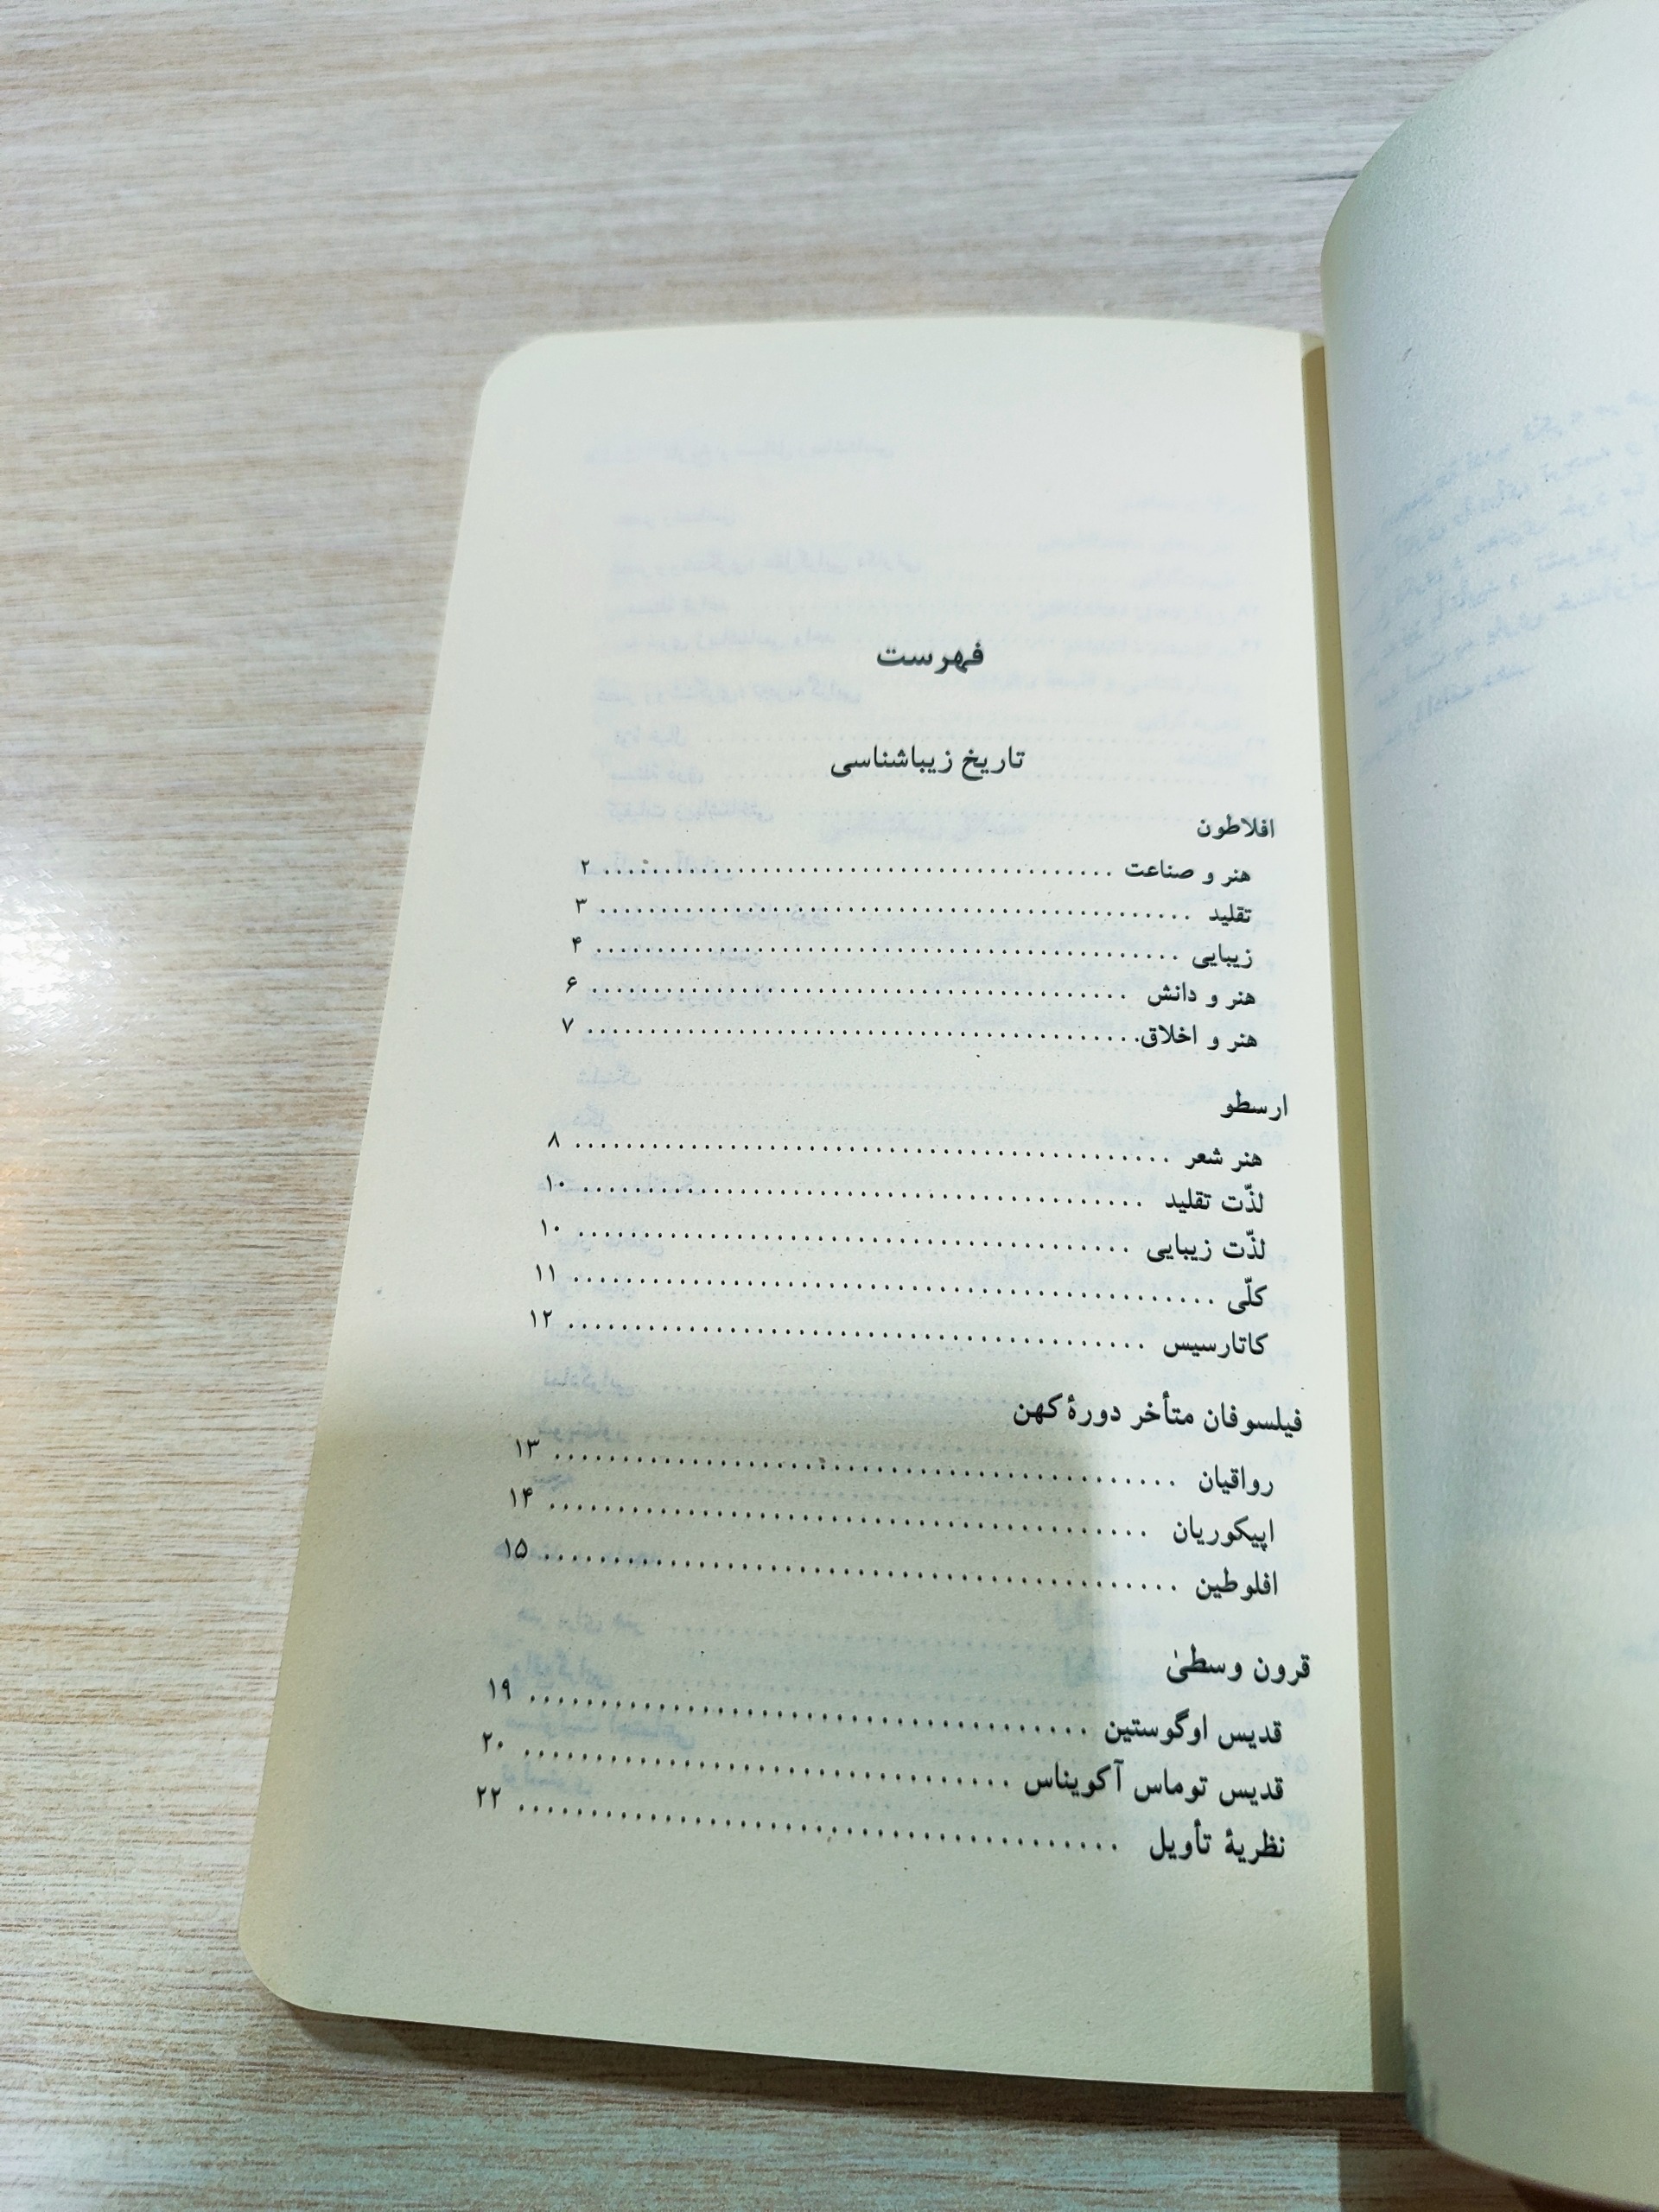 فهرست
تاریخ زیباشناسی
افلاطون
هنر و صناعت ........................................ ۲
تقلید ........................................ ۳
زیبایی ........................................ ۴
هنر و دانش ........................................ ۶
هنر و اخلاق ........................................ ۷
ارسطو
هنر شعر ........................................ ۸
لذّت تقلید ........................................ ۱۰
لذّت زیبایی ........................................ ۱۰
کلّی ........................................ ۱۱
کاتارسیس ........................................ ۱۲
فیلسوفان متأخر دورهٔ کهن
رواقیان ........................................ ۱۳
اپیکوریان ........................................ ۱۴
افلوطین ........................................ ۱۵
قرون وسطیٰ
قدیس اوگوستین ........................................ ۱۹
قدیس توماس آکویناس ........................................ ۲۰
نظریهٔ تأویل ........................................ ۲۲